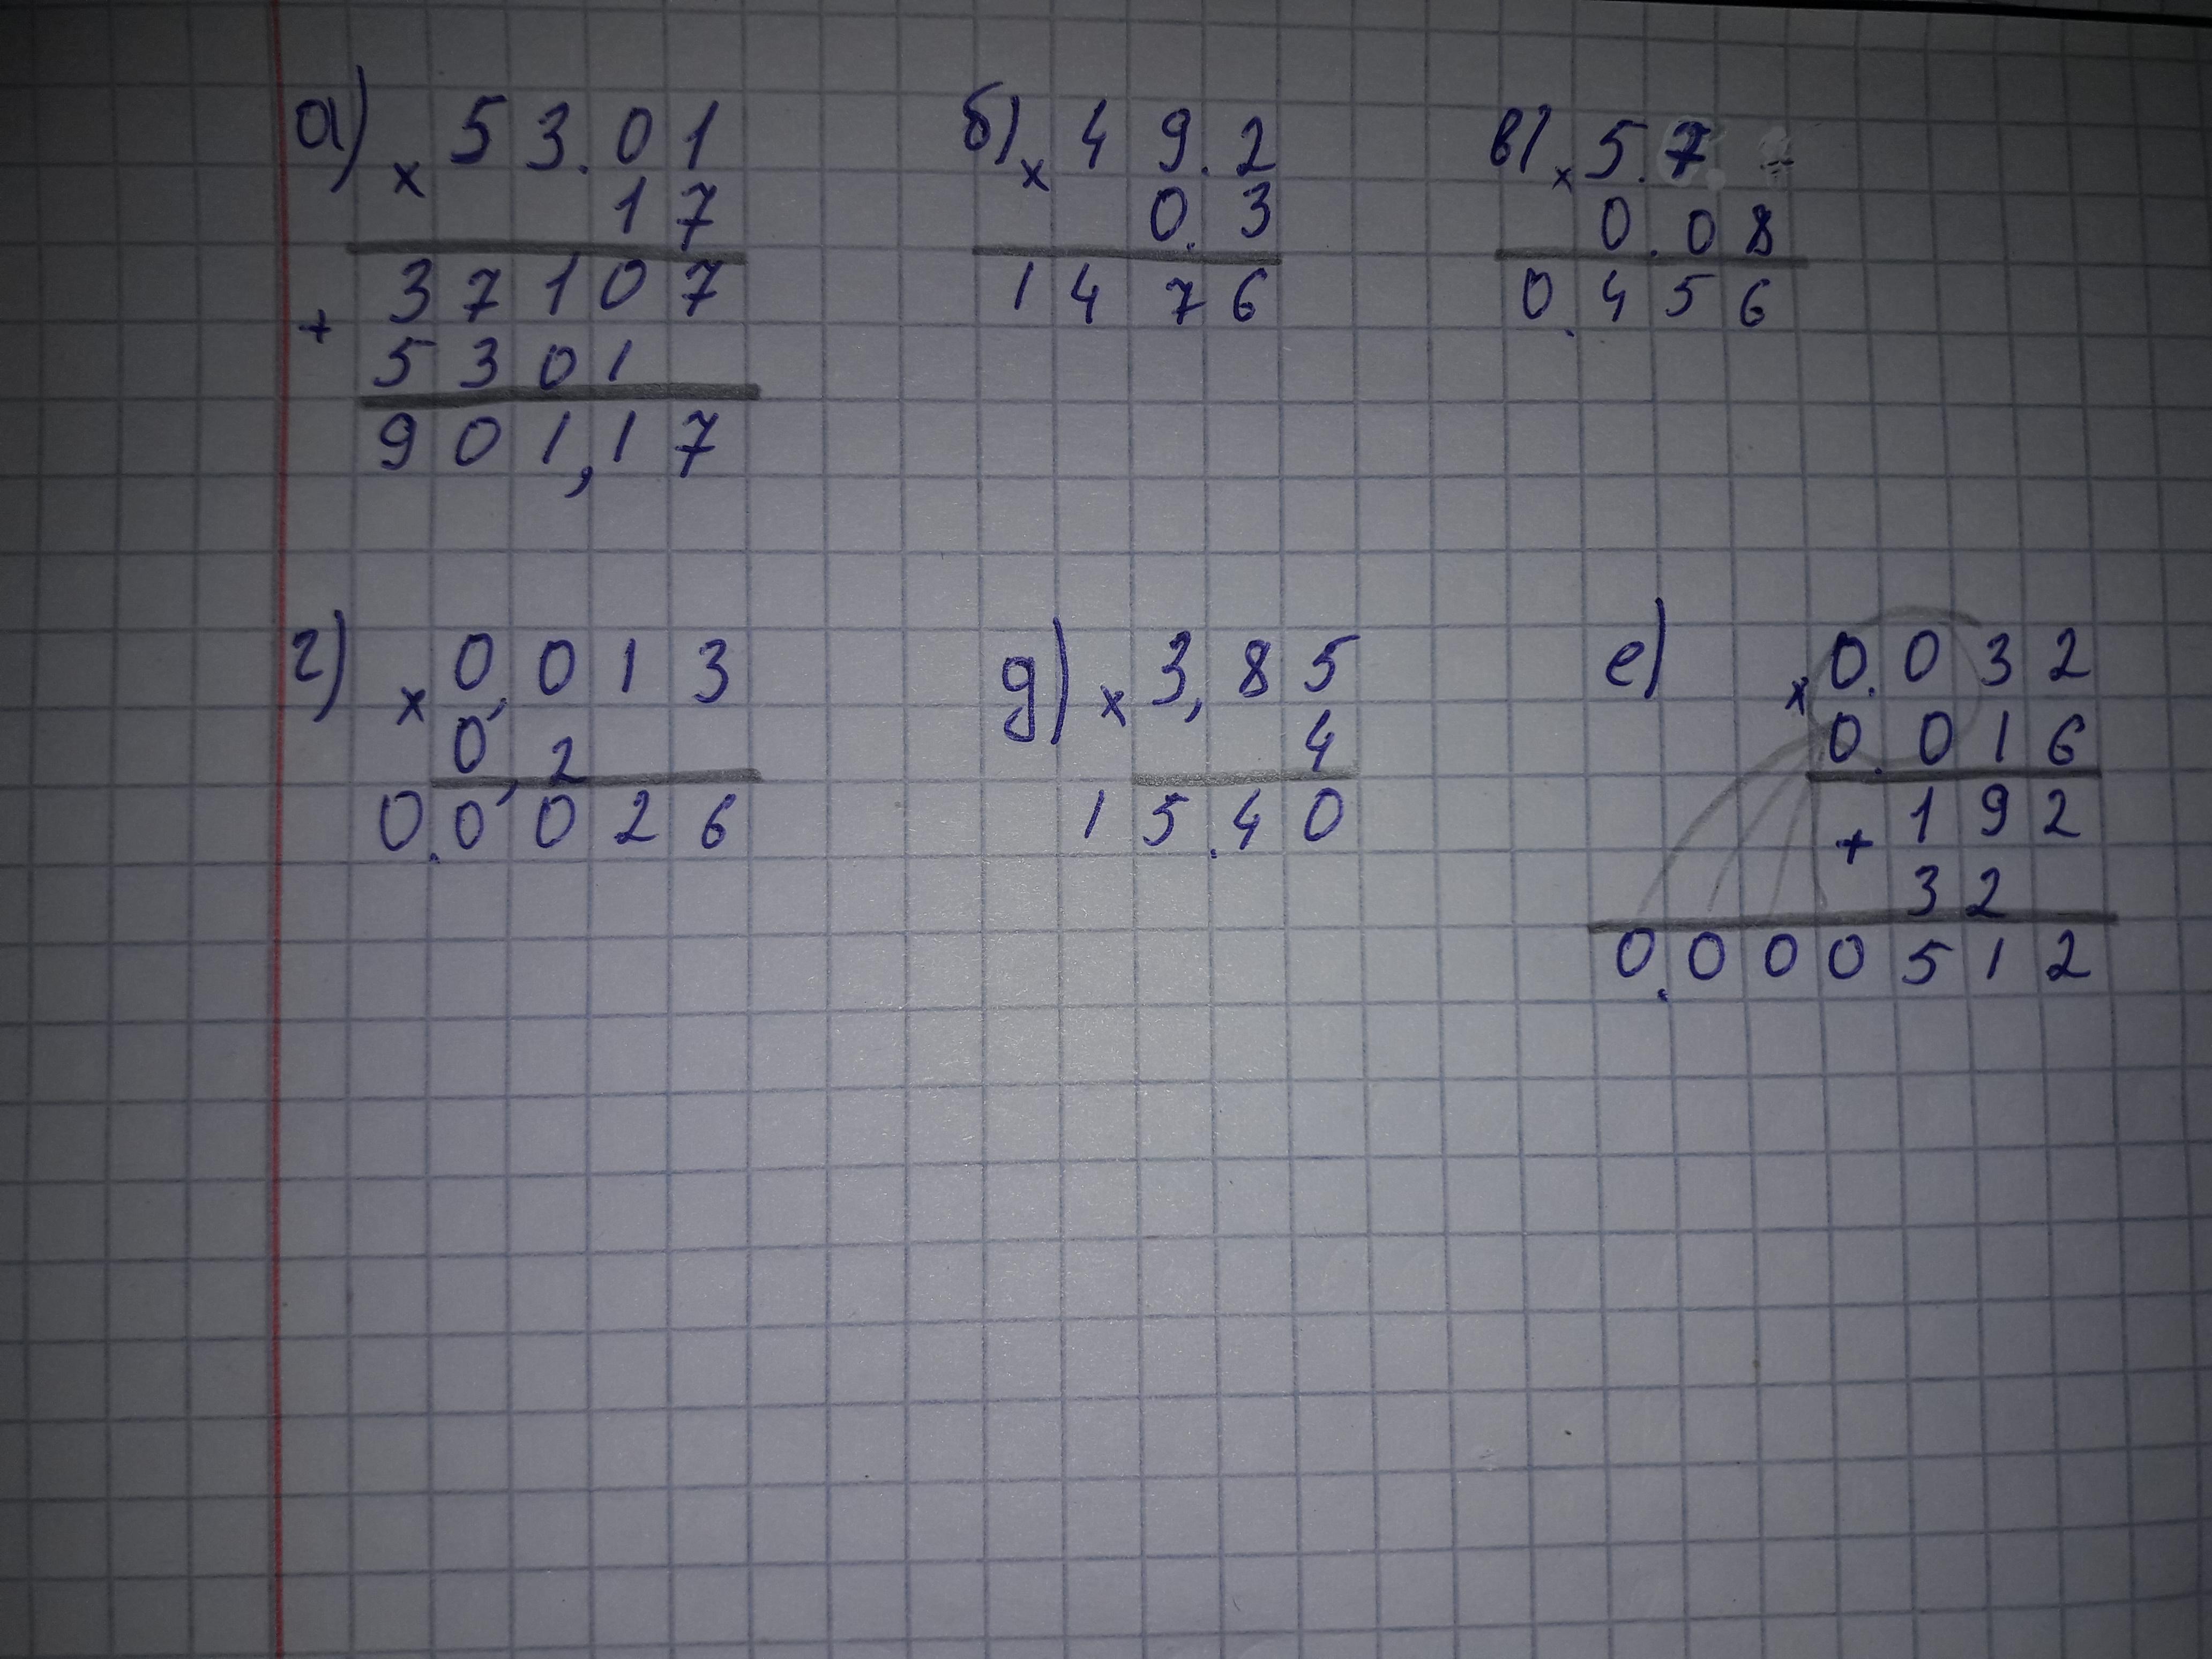 а) × 53.01
17
37107
+
5301
901,17
б) × 49.2
0.3
1476
в) × 5.7
0.08
0.456
г) × 0,013
0,2
0.0026
д) × 3,85
4
15.40
е) × 0.032
0.016
192
+
32
0.000512